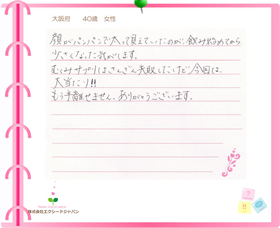 大阪府 40歳 女性
顔がパンパンで太って見えていたのが、飲み始めてから
少さくなった気がします。
むくみサプリはさんざん失敗してたけど今回は、
大当たり!!
もう手離せません。ありがとうございます。
株式会社エクシードジャパン